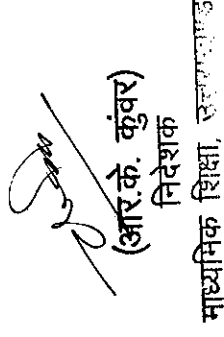 (आर.के. कुंवर)
निदेशक
माध्यमिक शिक्षा,